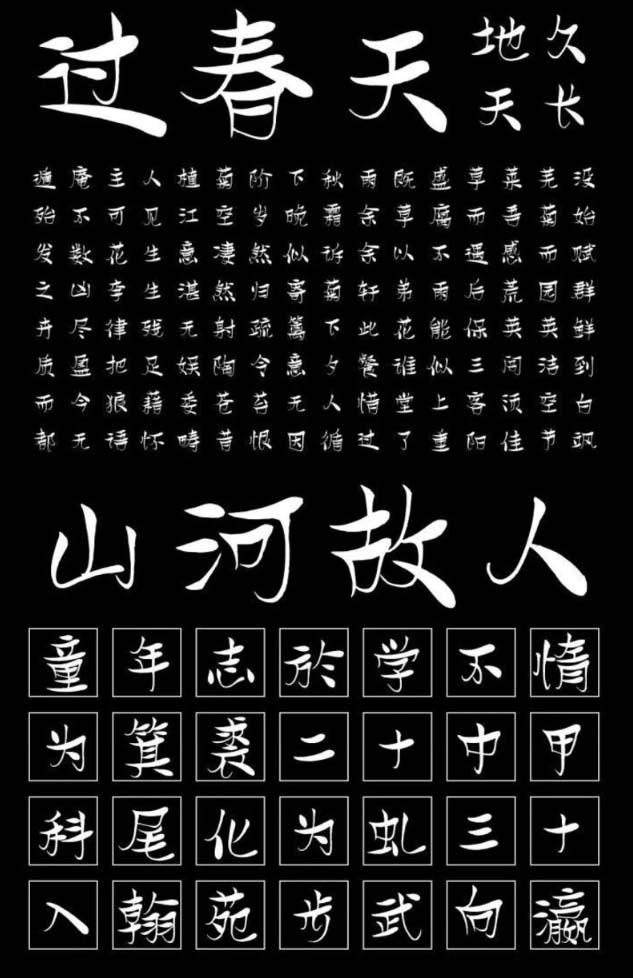 过春天 地久
天长
遁庵主人植菊阶下秋雨既盛草莱芜没
殆不可见江空岁晚霜余草腐而吾菊始
发数花生意凄然似诉余以不遇感而赋
之凶李生湛然归寄菊轩弟雨后荒园群
卉尽律残无射疏篱下此花能保英英鲜
质盈把足娱陶令意夕餐谁似三闾洁到
而今狼藉委苍苔无人惜堂上客须空白
都无语怀畴昔恨因循过了重阳佳节飒
山河故人
童年志於学不惰
为箕裘二十中甲
科尾化为虬三十
入翰苑步武向瀛